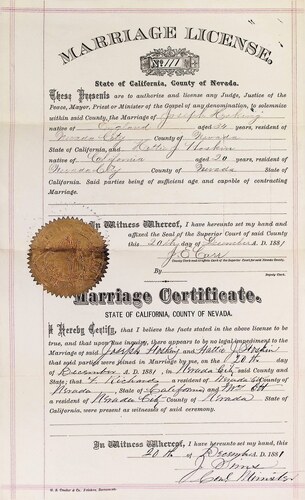 MARRIAGE LICENSE,
No. 111
State of California, County of Nevada.
These Presents are to authorize and license any Judge, Justice of the
Peace, Mayor, Priest or Minister of the Gospel of any denomination, to solemnize
within said County, the Marriage of Joseph Hosking
native of England aged 24 years, resident of
Nevada City County of Nevada
State of California, and Hattie J Hoskin
native of California aged 20 years, resident of
Nevada City County of Nevada State of
California. Said parties being of sufficient age and capable of contracting
Marriage.
In Witness Whereof, I have hereunto set my hand and
affixed the Seal of the Superior Court of said County
this 20th day of December A.D. 1881
J. E. Carr
By
Deputy Clerk.
Marriage Certificate.
STATE OF CALIFORNIA, COUNTY OF NEVADA.
I Hereby Certify, that I believe the facts stated in the above license to be
true, and that upon due inquiry, there appears to be no legal impediment to the
Marriage of said Joseph Hosking and Hattie J Hoskin
that said parties were joined in Marriage by me, on the 20th day
of December A.D. 1881, in Nevada City said County and
State; that F. Richards a resident of Nevada City
County of Nevada State of California and Wm
a resident of Nevada City County of Nevada State of
California, were present as witnesses of said ceremony.
In Witness Whereof, I have hereunto set my hand, this
20th of December A.D. 1881
J. Sims
Minister